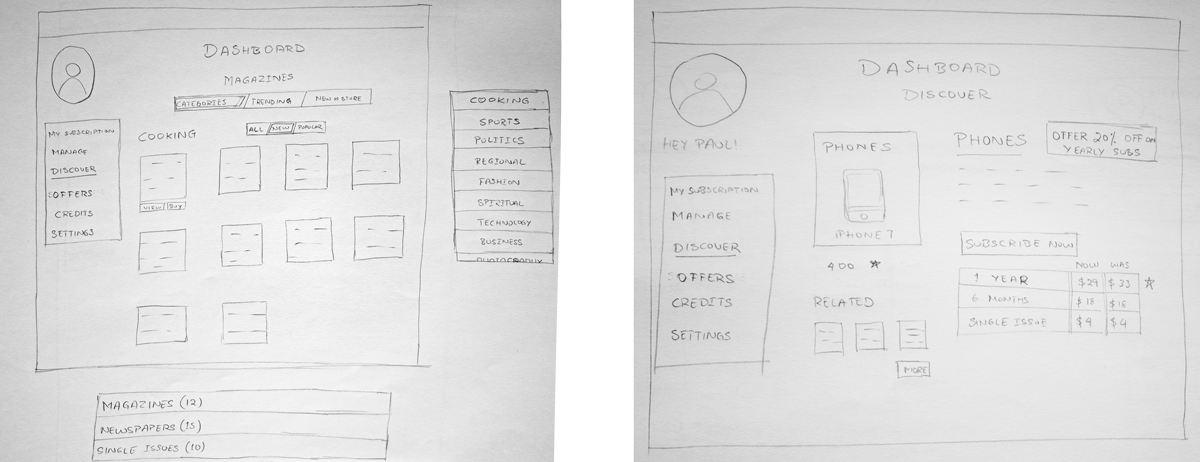 DASHBOARD
MAGAZINES
CATEGORIES TRENDING NEW STORE
COOKING
ALL NEW POPULAR
MY SUBSCRIPTION
MANAGE
DISCOVER
OFFERS
CREDITS
SETTINGS
VIEW BUY
COOKING
SPORTS
POLITICS
REGIONAL
FASHION
SPIRITUAL
TECHNOLOGY
BUSINESS
MAGAZINES (12)
NEWSPAPERS (15)
SINGLE ISSUES (10)
DASHBOARD
DISCOVER
HEY PAUL!
MY SUBSCRIPTION
MANAGE
DISCOVER
OFFERS
CREDITS
SETTINGS
PHONES
iPHONE 7
400
RELATED
MORE
PHONES
OFFER 20% OFF ON
YEARLY SUBS
SUBSCRIBE NOW
NOW WAS
1 YEAR $29 $33
6 MONTHS $18 $18
SINGLE ISSUE $4 $4